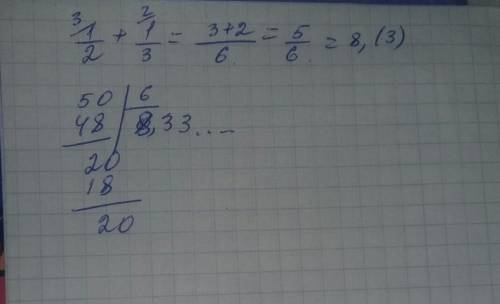 ³1/2 + ²1/3 = 3+2/6 = 5/6 = 8,(3)
50 | 6
48 | 8,33...
20
18
20